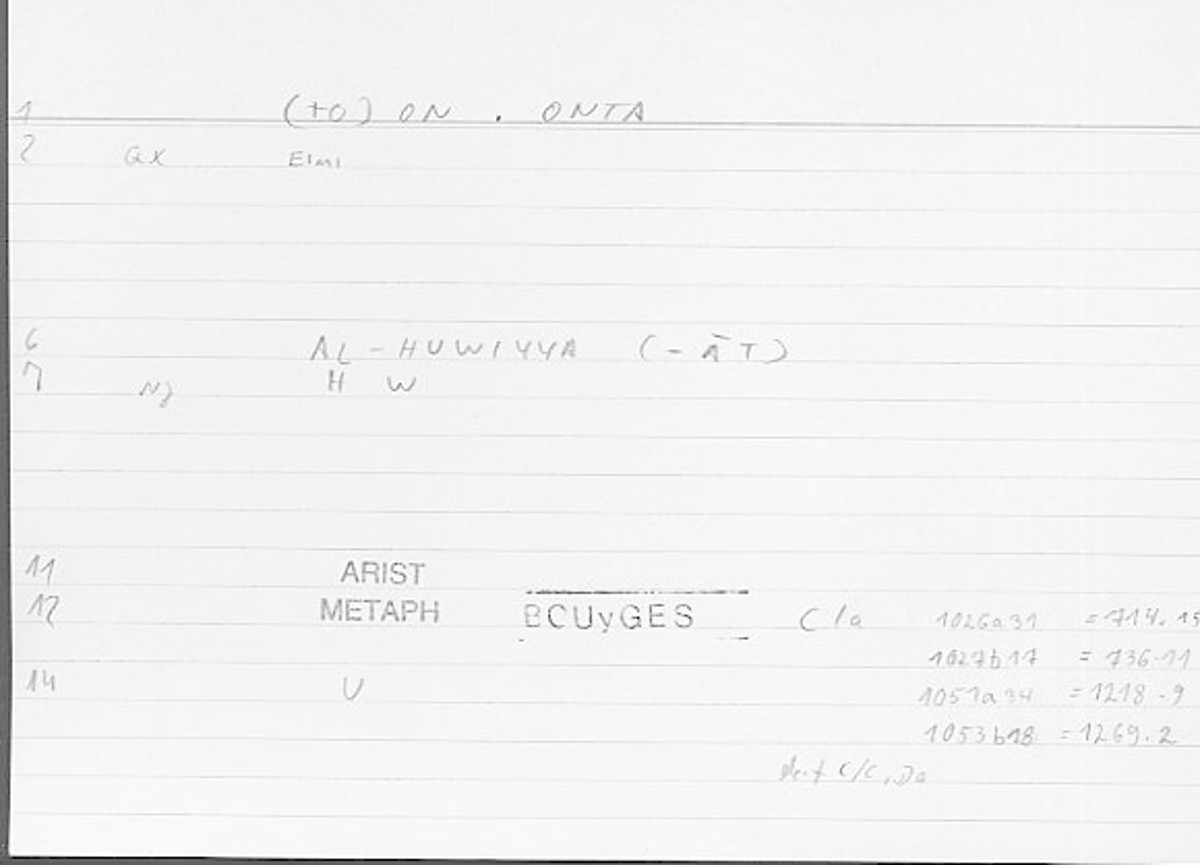 1 (TO) ON . ONTA
2 GX EIMI
6 AL-HUWIYYA (-ĀT)
7 NJ H W
11 ARIST
12 METAPH BCUyGES C/a 1026a31 = 714.15
1027b17 = 736.11
14 U 1051a34 = 1218.9
1053b18 = 1269.2
C/C, Da